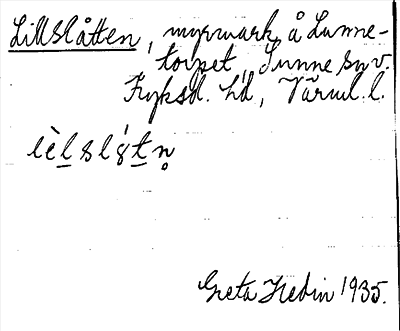 Lillslåtten, myrmark å Sunne-
torpet, Sunne sn v.
Fryksd. hd, Värml. l.
Greta Hedin 1935.